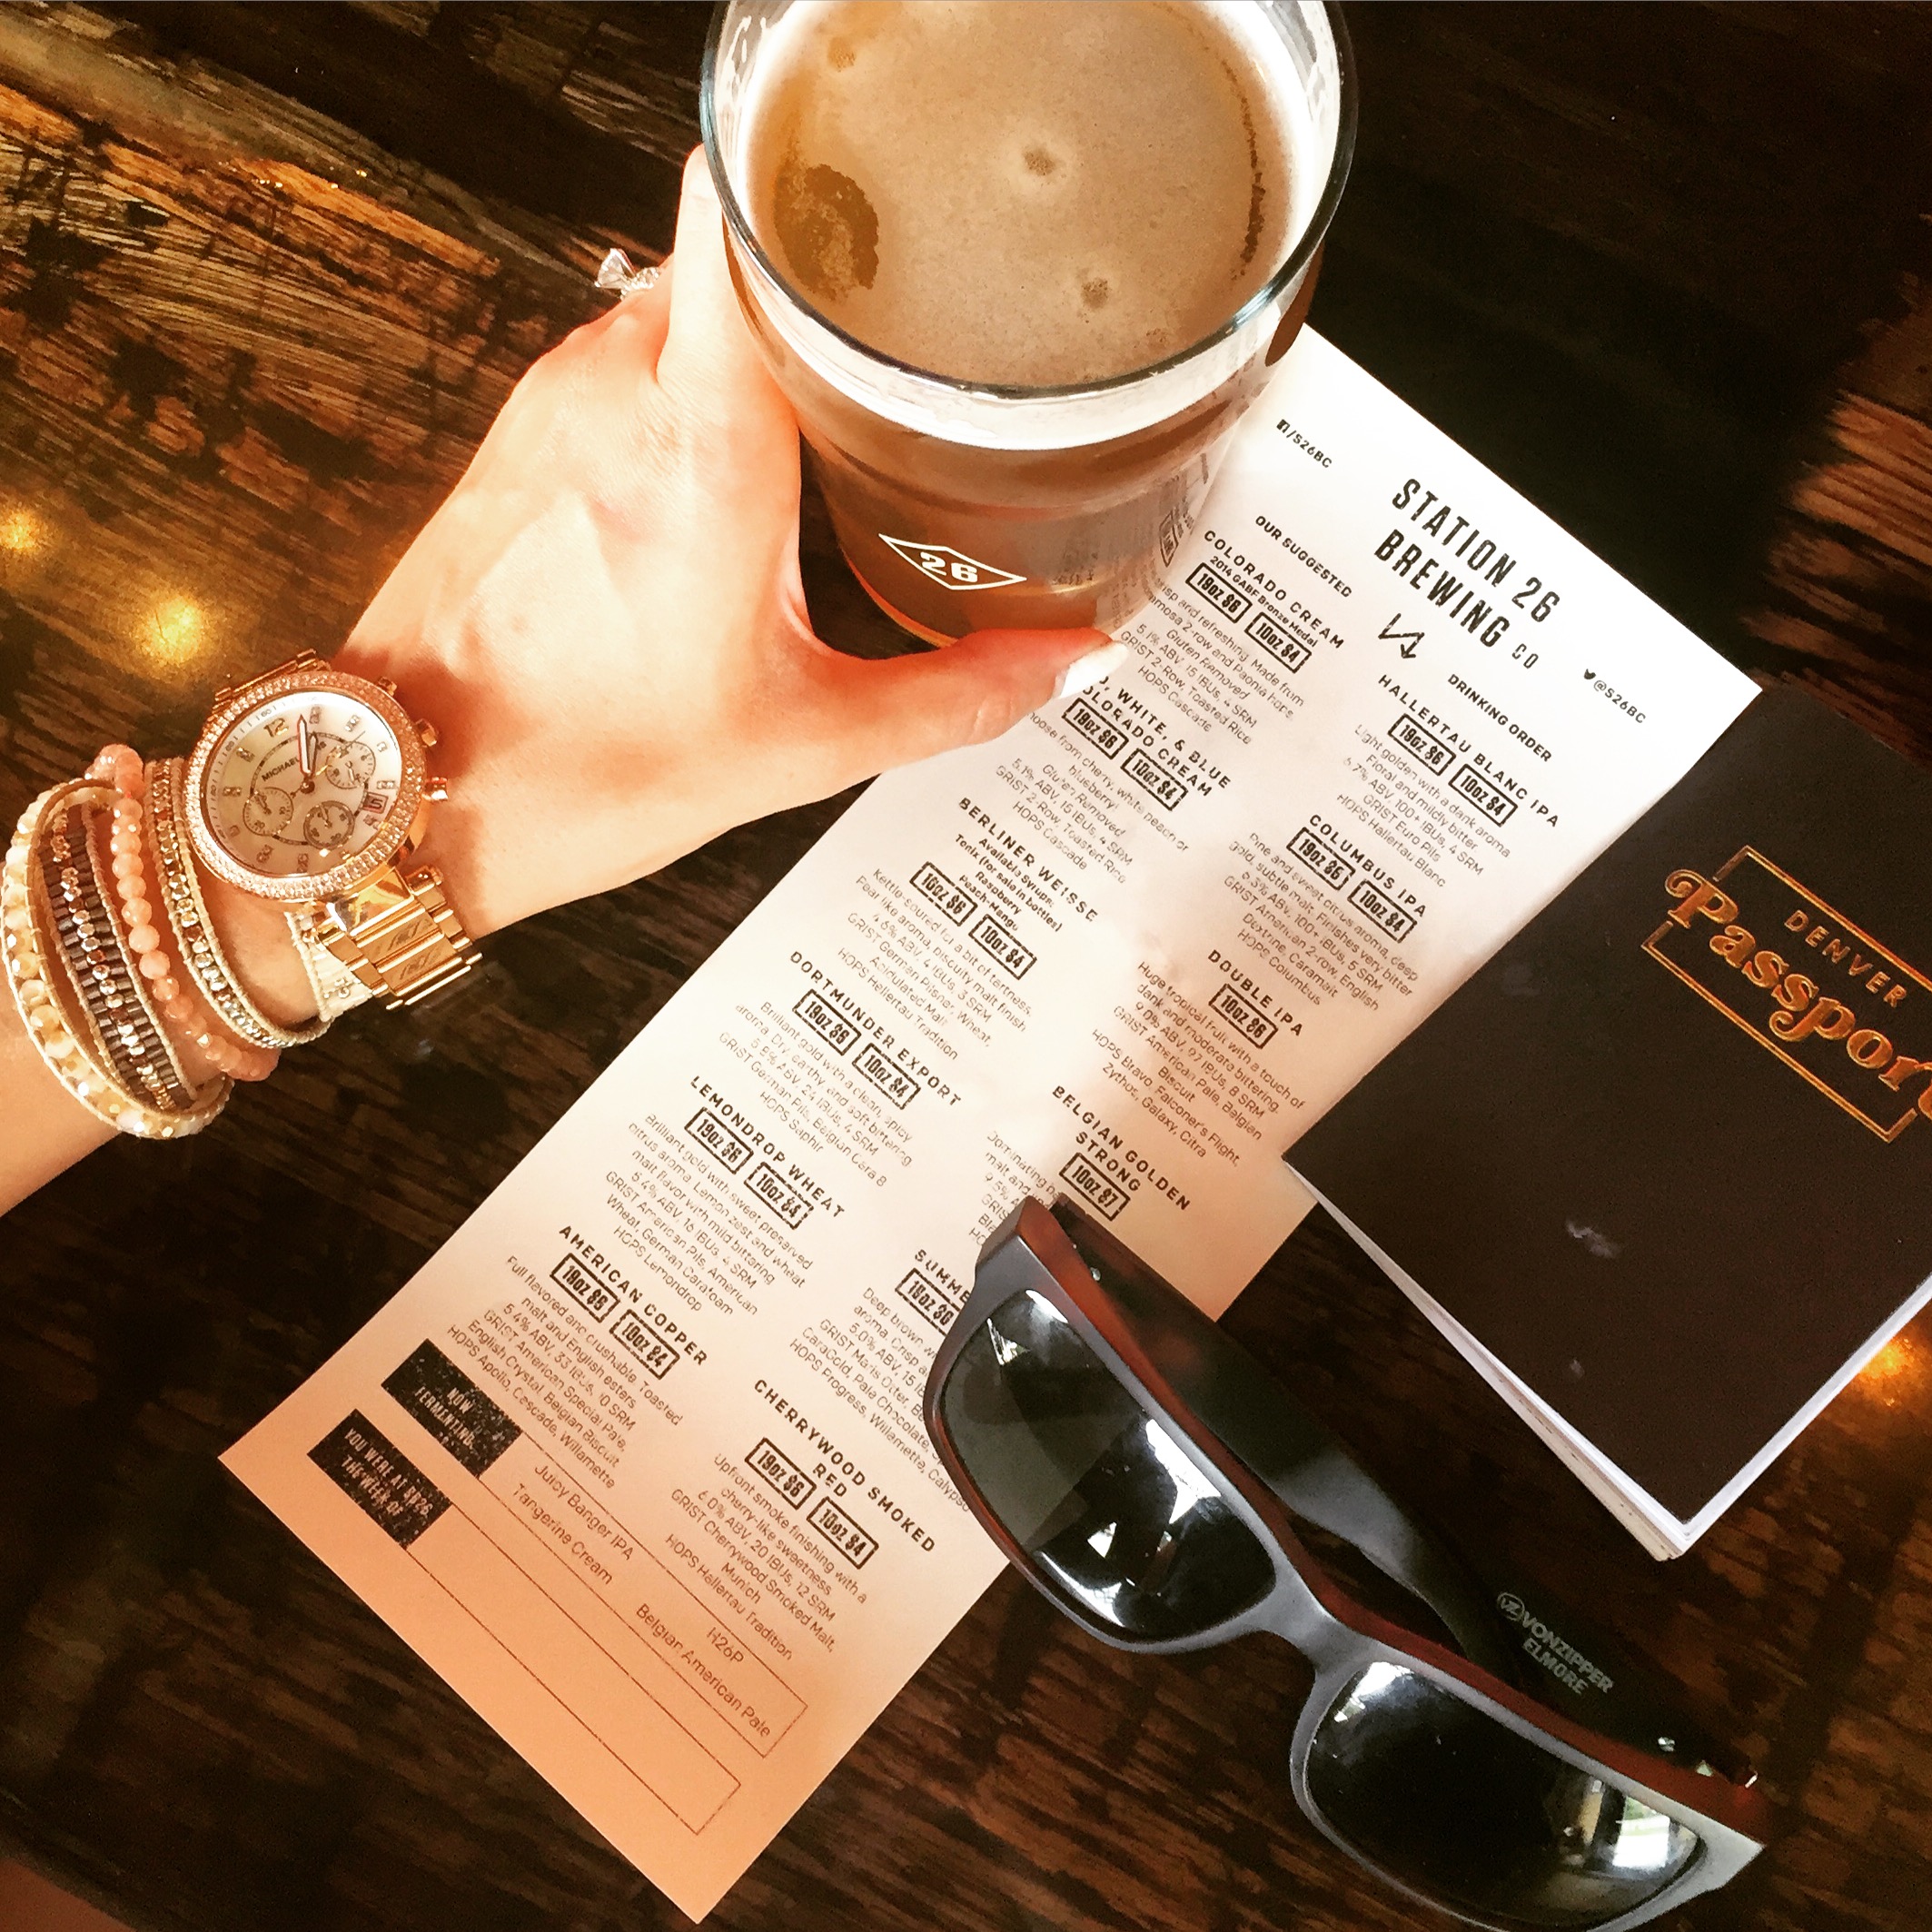 f/S26BC
STATION 26
BREWING CO
@S26BC
OUR SUGGESTED
DRINKING ORDER
COLORADO CREAM
2014 GABF Bronze Medal
19oz $6 10oz $4
and refreshing. Made from
2-row and Paonia hops.
Gluten Removed
5.1% ABV, 15 IBUs, 4 SRM
GRIST 2-Row, Toasted Rice
HOPS Cascade
WHITE, & BLUE
COLORADO CREAM
19oz $6 10oz $4
from cherry, white peach or
blueberry!
Gluten Removed
5.1% ABV, 15 IBUs, 4 SRM
GRIST 2-Row, Toasted Rice
HOPS Cascade
BERLINER WEISSE
Available Syrups:
Tonix (for sale in bottles)
Raspberry
Peach-Mango
16oz $6 10oz $4
Kettle-soured for a bit of tartness.
Pear like aroma, biscuity malt finish
4.6% ABV, 4 IBUs, 3 SRM
GRIST German Pilsner, Wheat,
Acidulated Malt
HOPS Hellertau Tradition
DORTMUNDER EXPORT
19oz $6 10oz $4
Brilliant gold with a clean, spicy
aroma. Dry, earthy, and soft bittering
5.8% ABV, 24 IBUs, 4 SRM
GRIST German Pils, Belgian Cara 8
HOPS Saphir
LEMONDROP WHEAT
19oz $6 10oz $4
Brilliant gold with sweet preserved
citrus aroma. Lemon zest and wheat
malt flavor with mild bittering
5.4% ABV, 16 IBUs, 4 SRM
GRIST American Pils, American
Wheat, German Carafoam
HOPS Lemondrop
AMERICAN COPPER
19oz $6 10oz $4
Full flavored and crushable. Toasted
malt and English esters
5.4% ABV, 33 IBUs, 10 SRM
GRIST American Special Pale,
English Crystal, Belgian Biscuit
HOPS Apollo, Cascade, Willamette
HALLERTAU BLANC IPA
19oz $6 10oz $4
Light golden with a dank aroma
Floral and mildly bitter
6.7% ABV, 100+ IBUs, 4 SRM
GRIST Euro Pils
HOPS Hallertau Blanc
COLUMBUS IPA
19oz $6 10oz $4
Pine and sweet citrus aroma, deep
gold, subtle malt. Finishes very bitter
100+ IBUs, 5 SRM
GRIST American 2-row, English
Dextrine, Caramalt
HOPS Columbus
DOUBLE IPA
10oz $6
Huge tropical fruit with a touch of
dank and moderate bittering.
9.0% ABV, 97 IBUs, 8 SRM
GRIST American Pale, Belgian
Biscuit
HOPS Bravo, Falconer's Flight,
Zythos, Galaxy, Citra
BELGIAN GOLDEN
STRONG
10oz $7
malt and
9.5%
SUMME
Deep brown
aroma. Crisp
5.0% ABV, 15
GRIST Maris Otter,
CaraGold, Pale Chocolate,
HOPS Progress, Willamette, Calypso
CHERRYWOOD SMOKED
RED
19oz $6 10oz $4
Upfront smoke finishing with a
cherry-like sweetness
6.0% ABV, 20 IBUs, 12 SRM
GRIST Cherrywood Smoked Malt,
Munich
HOPS Hallertau Tradition
NOW
FERMENTING.
Juicy Banger IPA H26P
Tangerine Cream Belgian American Pale
YOU WERE AT
THE WEEK OF
26
MICHAEL
DENVER
Passport
VONZIPPER
ELMORE